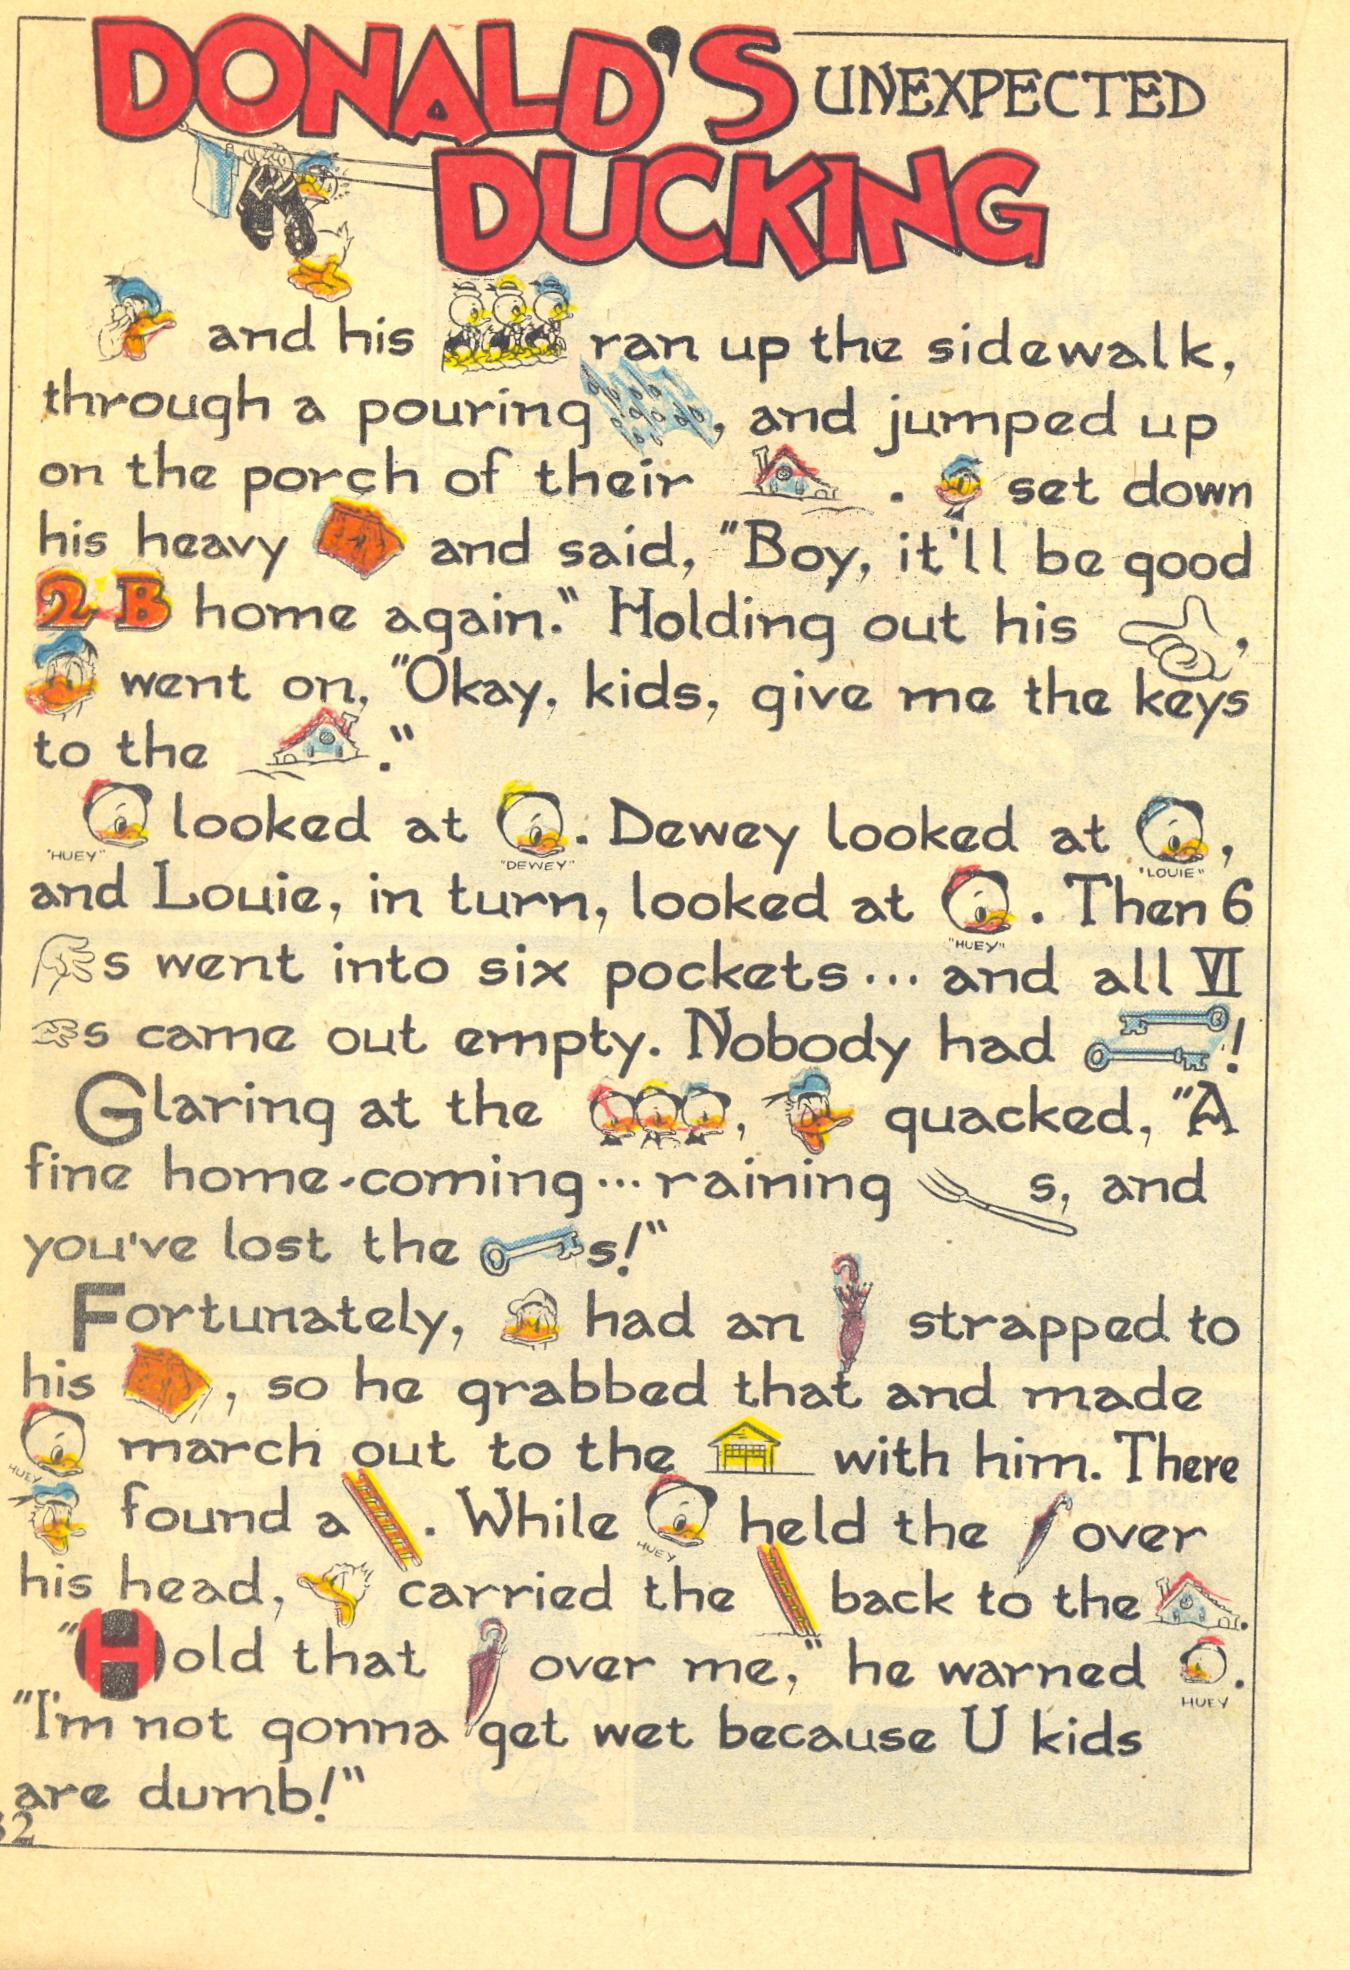 DONALD'S UNEXPECTED
DUCKING
and his ran up the sidewalk,
through a pouring , and jumped up
on the porch of their . set down
his heavy and said, "Boy, it'll be good
2 B home again." Holding out his ,
went on, "Okay, kids, give me the keys
to the ."
looked at . Dewey looked at ,
"HUEY" "DEWEY" "LOUIE"
and Louie, in turn, looked at . Then 6
"HUEY"
s went into six pockets... and all VI
s came out empty. Nobody had !
Glaring at the , quacked, "A
fine home-coming... raining s, and
you've lost the s!"
Fortunately, had an strapped to
his , so he grabbed that and made
march out to the with him. There
HUEY
found a . While held the over
HUEY
his head, carried the back to the .
"Hold that over me," he warned .
HUEY
"I'm not gonna get wet because U kids
are dumb!"
32